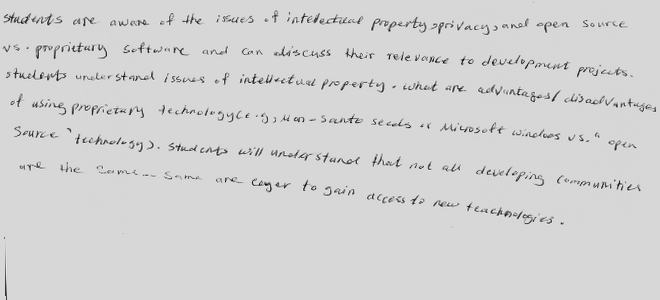 students are aware of the issues of intelectual property, privacy, and open source
vs. proprietary software and can discuss their relevance to development projects.
students understand issues of intellectual property. what are advantages/disadvantages
of using proprietary technology(e.g, Mon-santo seeds or Microsoft windows vs. "open
Source "technology). Students will understand that not all developing communities
are the same -- Same are eager to gain access to new teachnologies.